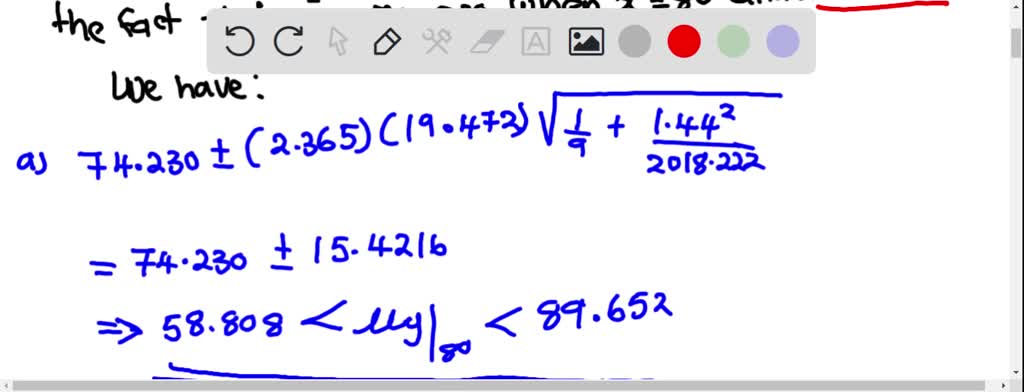 the fact
We have:
a) 74.230 ± (2.365)(19.472) √(1/9 + 1.44²/2018.222)
= 74.230 ± 15.4216
⇒ 58.808 < μy|80 < 89.652